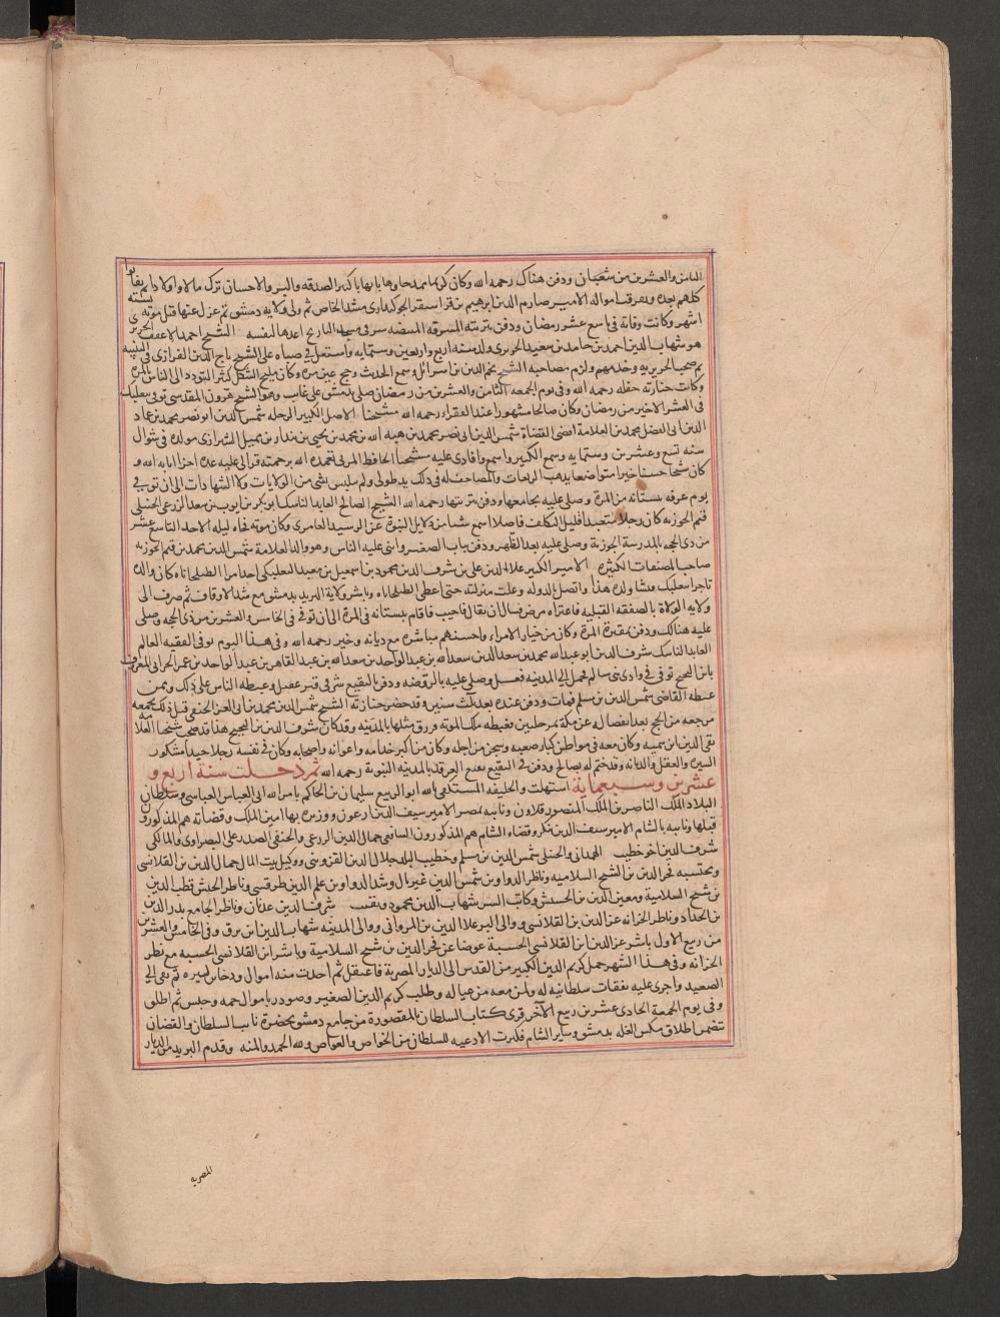 الثامن والعشرين من شعبان ودفن هناك رحمه الله وكان كريما ممدحا وهابا نهابا كثير الصدقه والبر والاحسان ترك مالا واولادا ثم تفانوا
كلهم بعده وتفرقت امواله الامير صارم الدين ابرهيم بن قراسنقر الجوكنداري مشد الخاص ثم ولي ولايه دمشق ثم عزل عنها قبل موته بسته
اشهر وكانت وفاته في تاسع عشر رمضان ودفن بتربته المشرفه المبيضه شرقي مسجد التاريخ اعدها لنفسه الشيخ احمد الاعقف الحريري
هو شهاب الدين احمد بن حامد بن سعيد الحريري ولد سنه اربع واربعين وستمايه واشتغل في صباه على الشيخ تاج الدين الفزاري في التنبيه
ثم صحب الحريريه وخدمهم ولزم مصاحبه الشيخ نجم الدين بن اسرائيل وسمع الحديث وحج غير مره وكان مليح الشكل كثير التودد الى الناس
وكانت جنازته حفله رحمه الله وفي يوم الجمعه الثامن والعشرين من رمضان صلي بدمشق على غايب وهو الشيخ هرون المقدسي توفي ببعلبك
في العشر الاخير من رمضان وكان صالحا مشهورا عند الفقراء رحمه الله شيخنا الاصل الكبير الرحله شمس الدين ابو نصر محمد بن عماد
الدين ابي الفضل محمد بن العلامة اضى القضاة شمس الدين ابي نصر محمد بن هبه الله بن محمد بن يحيى بن بندار بن مميل الشيرازي مولده في شوال
سنه تسع وعشرين وستمايه وسمع الكثير واسمع وافاد في عليه شيخنا الحافظ المزي تغمده الله برحمته قرا لي عليه عده اجزا اثابه الله و
كان شيخا حسنا خيرا متواضعا يذهب الربعات والمصاحف له في ذلك يد طولى ولم يتلبس بشي من الولايات ولا الشهادات الى ان توفي في
يوم عرفه ببستانه من المزة وصلي عليه بجامعها ودفن بتربتها رحمه الله الشيخ الصالح العابد الناسك ابو بكر بن ايوب بن سعد الزرعي الحنبلي
قيم الجوزيه كان رجلا متعبدا قليل التكلف فاضلا اسمع شيا من دلايل النبوة عن الرشيد العامري وكان موته فجاه ليله الاحد التاسع عشر
من ذي الحجه بالمدرسة الجوزيه وصلي عليه بعد الظهر ودفن بباب الصغير واثنى عليه الناس وهو والد العلامة شمس الدين محمد بن قيم الجوزيه
صاحب المصنفات الكثيره الامير الكبير علا الدين علي بن شرف الدين محمود بن اسمعيل بن معبد البعلبكي احد امرا الطبلخاناه كان والده
تاجرا ببعلبك فنشا ولده هذا واتصل بالدوله وعلت منزلته حتى اعطي الطبلخاناه وباشر ولاية البريد بدمشق مع شد الاوقاف ثم صرف الى
ولايه الولاة بالصفقه القبليه فاعتراه مرض فسال ان يقال فاجيب فاقام ببستانه في المزة الى ان توفي في الخامس والعشرين من ذي الحجه وصلي
عليه هنالك ودفن بمقبرة المزة وكان من خيار الامراء واحسنهم مباشره مع ديانه وخير رحمه الله وفي هذا اليوم توفي الفقيه العالم
العابد الناسك شرف الدين ابو عبد الله محمد بن سعد الدين سعد الله بن عبد الواحد بن سعد الله بن عبد القاهر بن عبد الواحد بن عمر الحراني المعروف
بابن النجيح توفي في وادي بني سالم فحمل الى المدينه فغسل وصلي عليه بالروضه ودفن بالبقيع شرقي قبر عقيل وغبطه الناس على ذلك وممن
غبطه القاضي شمس الدين بن مسلم فمات ودفن عنده بعد ثلث سنين وقد حضر جنازته الشيخ شمس الدين محمد بن ابي العز الحنفي قبل ذلك بجمعه
مرجعه من الحج بعد انفصاله عن مكه بمرحلتين فغبطه تلك الموته ورزق مثلها بالمدينه وقد كان شرف الدين بن النجيح هذا قد صحب شيخنا العلامه
تقي الدين ابن تيميه وكان معه في مواطن كبار صعبه وسجن من اجله وكان من اكبر خدامه واعوانه واصحابه وكان في نفسه رجلا جيدا مشكور
السيرة والعقل والديانه وقد ختم له بصالح ودفن في البقيع بقيع الغرقد بالمدينه النبوية رحمه الله ثم دخلت سنة اربع و
عشرين وسبعماية استهلت والخليفه المستكفي الله ابو الربيع سليمان بن الحاكم بامر الله ابي العباس العباسي وسلطان
البلاد الملك الناصر بن الملك المنصور قلاون ونايبه بمصر الامير سيف الدين ارغون ووزيره بها امين الملك وقضاته هم المذكورو
قبلها ونايبه بالشام الامير سيف الدين تنكز وقضاه الشام هم المذكورون الشافعي جمال الدين الزرعي والحنفي الصدر علي البصراوي والمالكي
شرف الدين اخو خطيب الهمداني والحنبلي شمس الدين بن مسلم وخطيب البلد جلال الدين القزويني ووكيل بيت المال جمال الدين بن القلانسي
ومحتسبه فخر الدين بن الشيخ السلاميه وناظر الدواوين شمس الدين غبريال وشد الدواوين علم الدين طرقشي وناظر الجيش قطب الدين
بن شيخ السلامية ومعين الدين بن الحشيش وكاتب السر شهاب الدين محمود ونقيب شرف الدين عدنان وناظر الجامع بدر الدين
بن الحداد وناظر الخزانه عز الدين بن القلانسي ووالي البر علا الدين بن المرواني ووالي المدينه شهاب الدين بن برق وفي الخامس والعشرين
من ربيع الاول باشر عز الدين ابن القلانسي الحسبة عوضا عن فخر الدين بن شيخ السلامية وباشر ابن القلانسي الحسبه مع نظر
الخزانه وفي هذا الشهر حمل كريم الدين الكبير من القدس الى الديار المصرية فاعتقل ثم اخذت منه اموال وذخاير كثيره ثم نفي الى
الصعيد واجرى عليه نفقات سلطانيه له ولمن معه من عياله وطلب كريم الدين الصغير وصودر باموال جمه وحبس ثم اطلق
وفي يوم الجمعة الحادي عشر من ربيع الآخر قري كتاب السلطان بالمقصورة من جامع دمشق بحضرة نايب السلطان والقضاة
تتضمن اطلاق مكس الغله بدمشق وساير الشام فكثرت الادعيه للسلطان من الخواص والعوام ولله الحمد والمنه وقدم البريد من الديار
المصريه